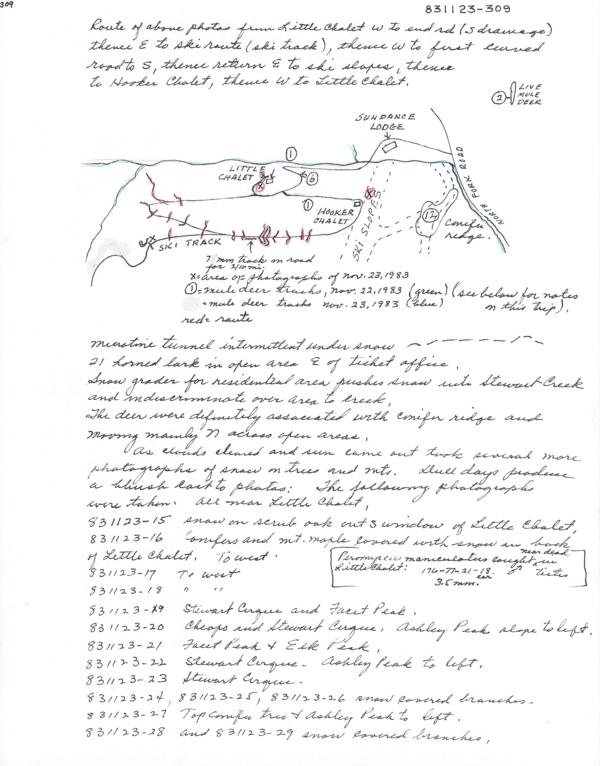 309
831123-309
Route of above photos from Little Chalet W to end rd (S drainage)
thence E to ski route (ski track), thence W to first curved
road to S, thence return E to ski slopes, thence
to Hooker Chalet, thence W to Little Chalet.
② LIVE
MULE
DEER
SUNDANCE
LODGE
①
LITTLE
CHALET
⑥
①
HOOKER
CHALET
SKI SLOPES
⑫
Conifer
ridge.
NORTH PARK ROAD
SKI TRACK
7 mm track on road
for 2/10 mi.
X = area of photographs of Nov. 23, 1983
① = mule deer tracks, Nov. 22, 1983 (green) (see below for notes
= mule deer tracks Nov. 23, 1983 (blue) on this trip).
red = route
microtine tunnel intermittent under snow
21 horned lark in open area E of ticket office.
Snow grader for residential area pushes snow into Stewart Creek
and indiscriminate over area to creek.
The deer were definitely associated with conifer ridge and
moving mainly N across open areas.
As clouds cleared and sun came out took several more
photographs of snow on trees and mts. Dull days produce
a bluish cast to photos: The following photographs
were taken. All near Little Chalet.
831123-15 snow on scrub oak out S window of Little Chalet.
831123-16 conifers and mt. maple covered with snow in back
of Little Chalet. To west.
Peromyscus maniculatus caught near dead in
Little Chalet: 176-77-21-18. ♂ testes
3.5 mm.
831123-17 To west
831123-18 " "
831123-19 Stewart Cirque and Facet Peak.
831123-20 Cheops and Stewart Cirque. Ashley Peak slope to left.
831123-21 Facet Peak & Elk Peak.
831123-22 Stewart Cirque. Ashley Peak to left.
831123-23 Stewart Cirque.
831123-24, 831123-25, 831123-26 snow covered branches.
831123-27 Top conifer tree & Ashley Peak to left.
831123-28 and 831123-29 snow covered branches.